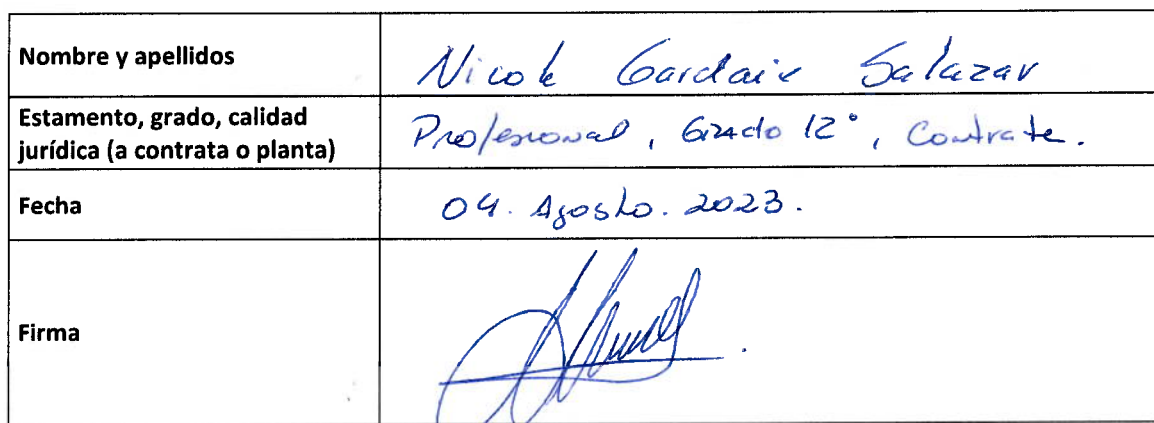 Nombre y apellidos
Nicole Gardaix Salazar
Estamento, grado, calidad
jurídica (a contrata o planta)
Profesional, Grado 12°, Contrata.
Fecha
04. Agosto. 2023.
Firma